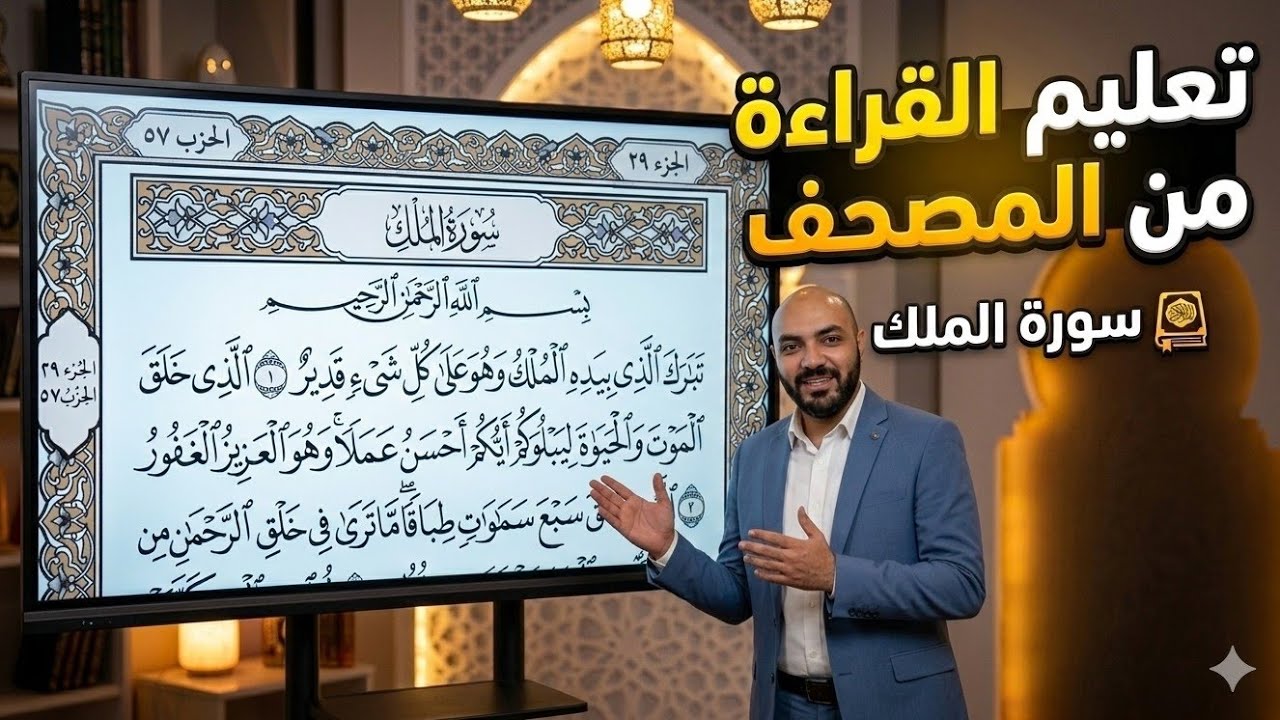 تعليم القراءة
من المصحف
سورة الملك
الحزب ٥٧
الجزء ٢٩
سُورَةُ المُلك
بِسْمِ ٱللَّهِ ٱلرَّحْمَٰنِ ٱلرَّحِيمِ
تَبَٰرَكَ ٱلَّذِى بِيَدِهِ ٱلْمُلْكُ وَهُوَ عَلَىٰ كُلِّ شَىْءٍ قَدِيرٌ ١ ٱلَّذِى خَلَقَ
ٱلْمَوْتَ وَٱلْحَيَوٰةَ لِيَبْلُوَكُمْ أَيُّكُمْ أَحْسَنُ عَمَلًا ۚ وَهُوَ ٱلْعَزِيزُ ٱلْغَفُورُ
٢ سَبْعَ سَمَٰوَٰتٍ طِبَاقًا ۖ مَّا تَرَىٰ فِى خَلْقِ ٱلرَّحْمَٰنِ مِن
الجُزء ٢٩
الحِزبُ ٥٧